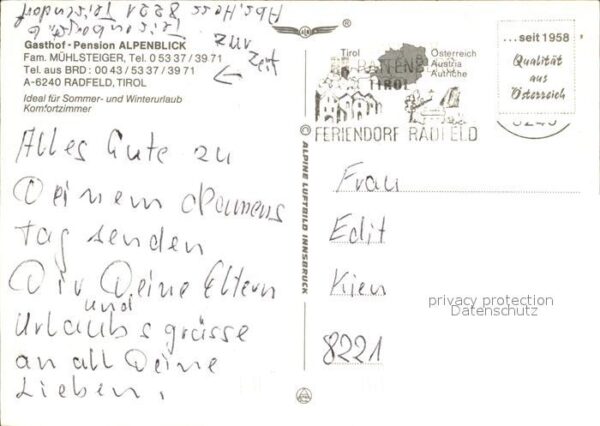 Abs. Hess 8221 Teisendorf
zur
Zeit
Gasthof - Pension ALPENBLICK
Fam. MÜHLSTEIGER, Tel. 0 53 37 / 39 71
Tel. aus BRD : 00 43 / 53 37 / 39 71
A-6240 RADFELD, TIROL
Ideal für Sommer- und Winterurlaub
Komfortzimmer
Alles Gute zu
Deinem Namens
tag senden
Dir Deine Eltern
und
Urlaubsgrüsse
an all Deine
Lieben.
®
© ALPINE LUFTBILD INNSBRUCK
Tirol
Österreich
Austria
Autriche
RATTENB
TIROL
FERIENDORF RADFELD
...seit 1958
Qualität
aus
Österreich
Frau
Edit
Kien
8221
privacy protection
Datenschutz